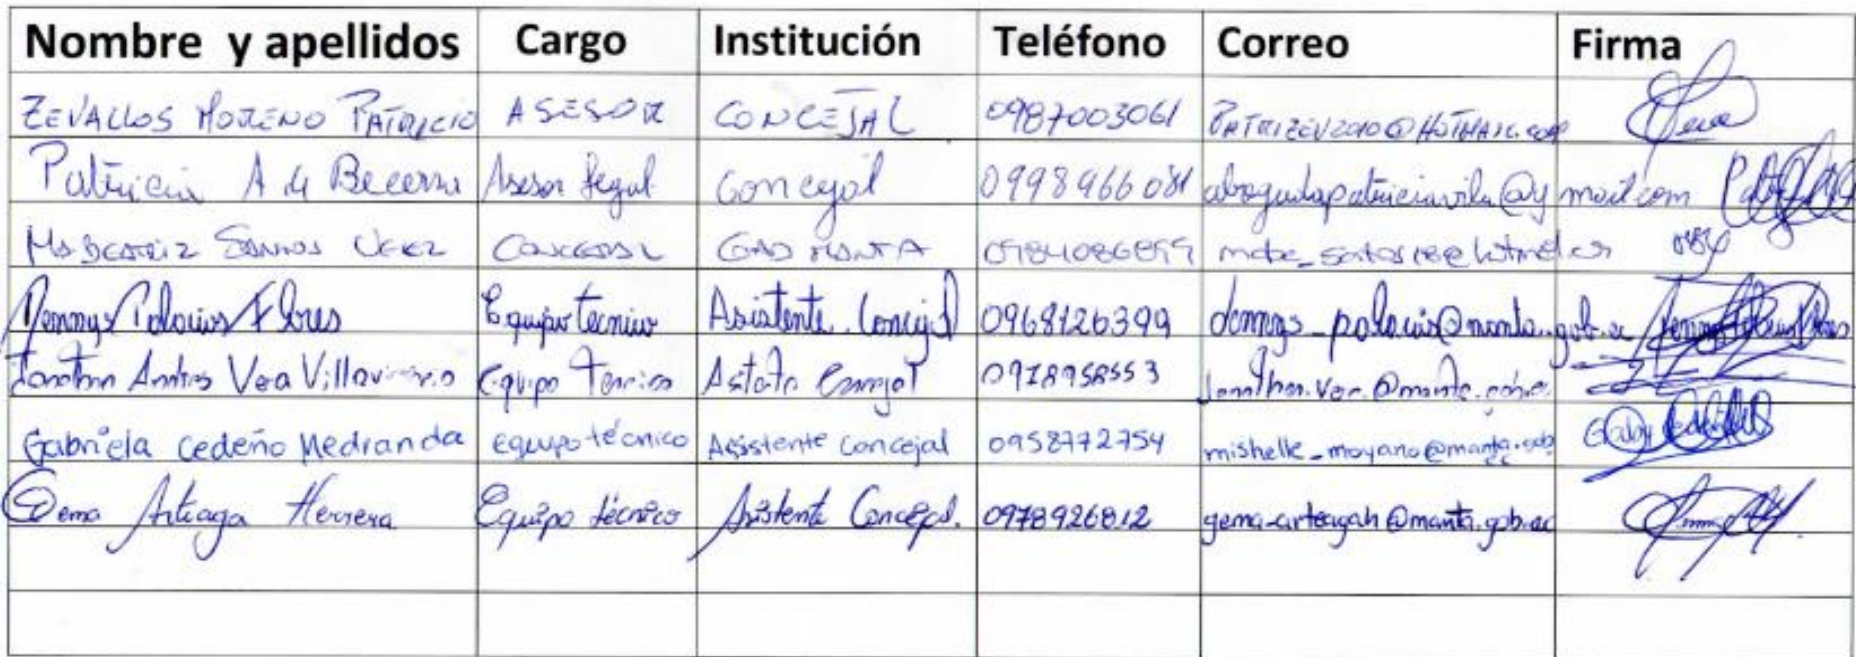 Nombre y apellidos Cargo Institución Teléfono Correo Firma
ZEVALLOS MORENO PATRICIO ASESOR CONCEJAL 0987003061 PATRIZEV2010@HOTMAIL.COM
Patricia A de Becerra Asesor legal Concejal 0998966081 abogadapatriciavila@ymail.com
Ma BEATRIZ SANTOS VELEZ CONCEJAL GAD MANTA
Dennys Palacios Flores Equipo técnico Asistente Concejal 0968126399 dennys_palacios@manta.gob.ec
Jonathan Andres Vera Villavicencio Equipo Tecnico 0978958553
Gabriela Cedeño Medranda equipo técnico Assistente Concejal 0958772754 mishelle_moyano@manta.gob
Gema Arteaga Herrera Equipo técnico Asistente Concejal. 0978926812 gema-arteagah@manta.gob.ec